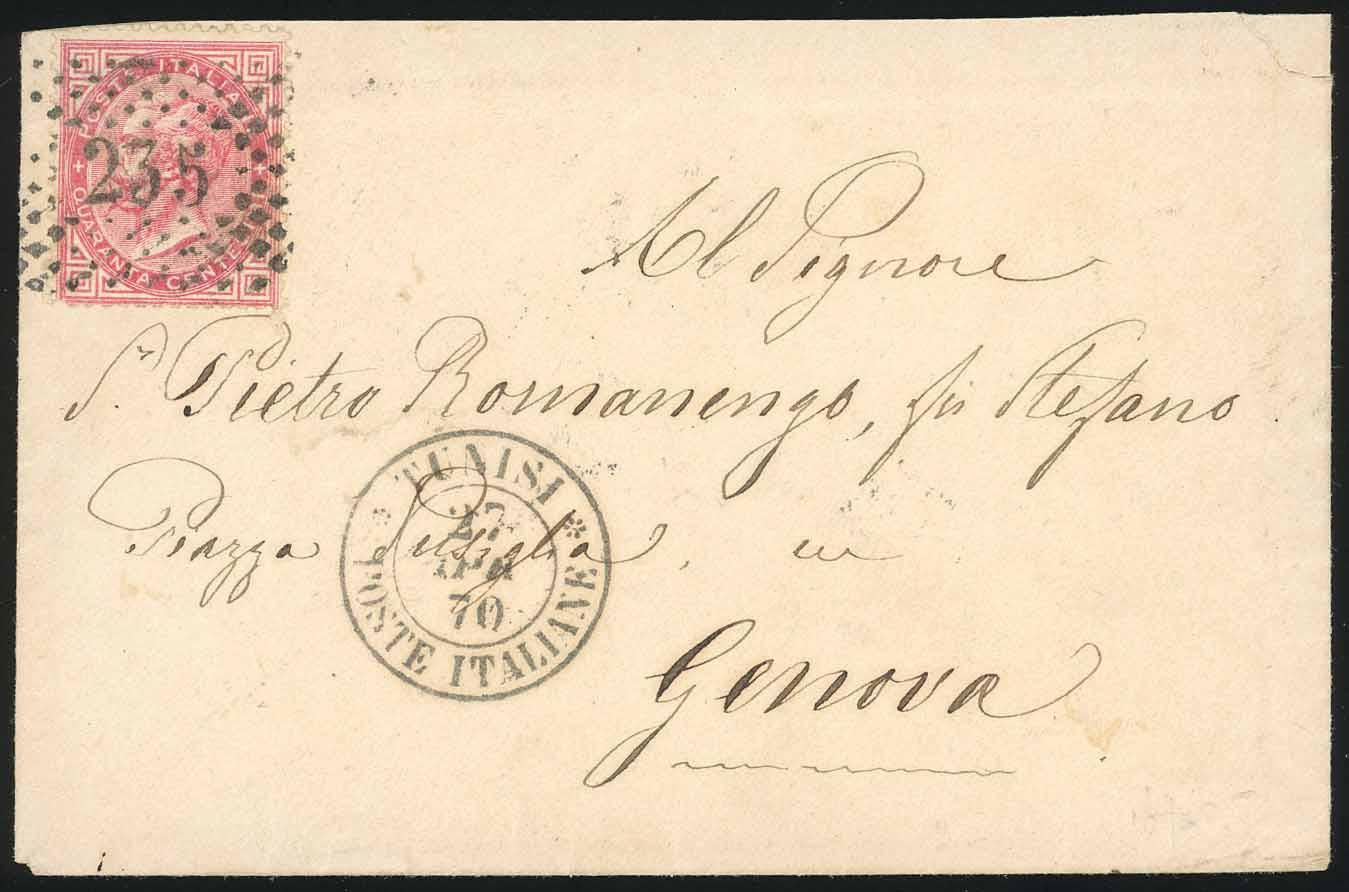 POSTE ITALIANE
QUARANTA CENTESIMI
235
Al Signore
Sr. Pietro Romanengo, fu Stefano
Piazza in
Genova
TUNISI
27
APR
70
POSTE ITALIANE